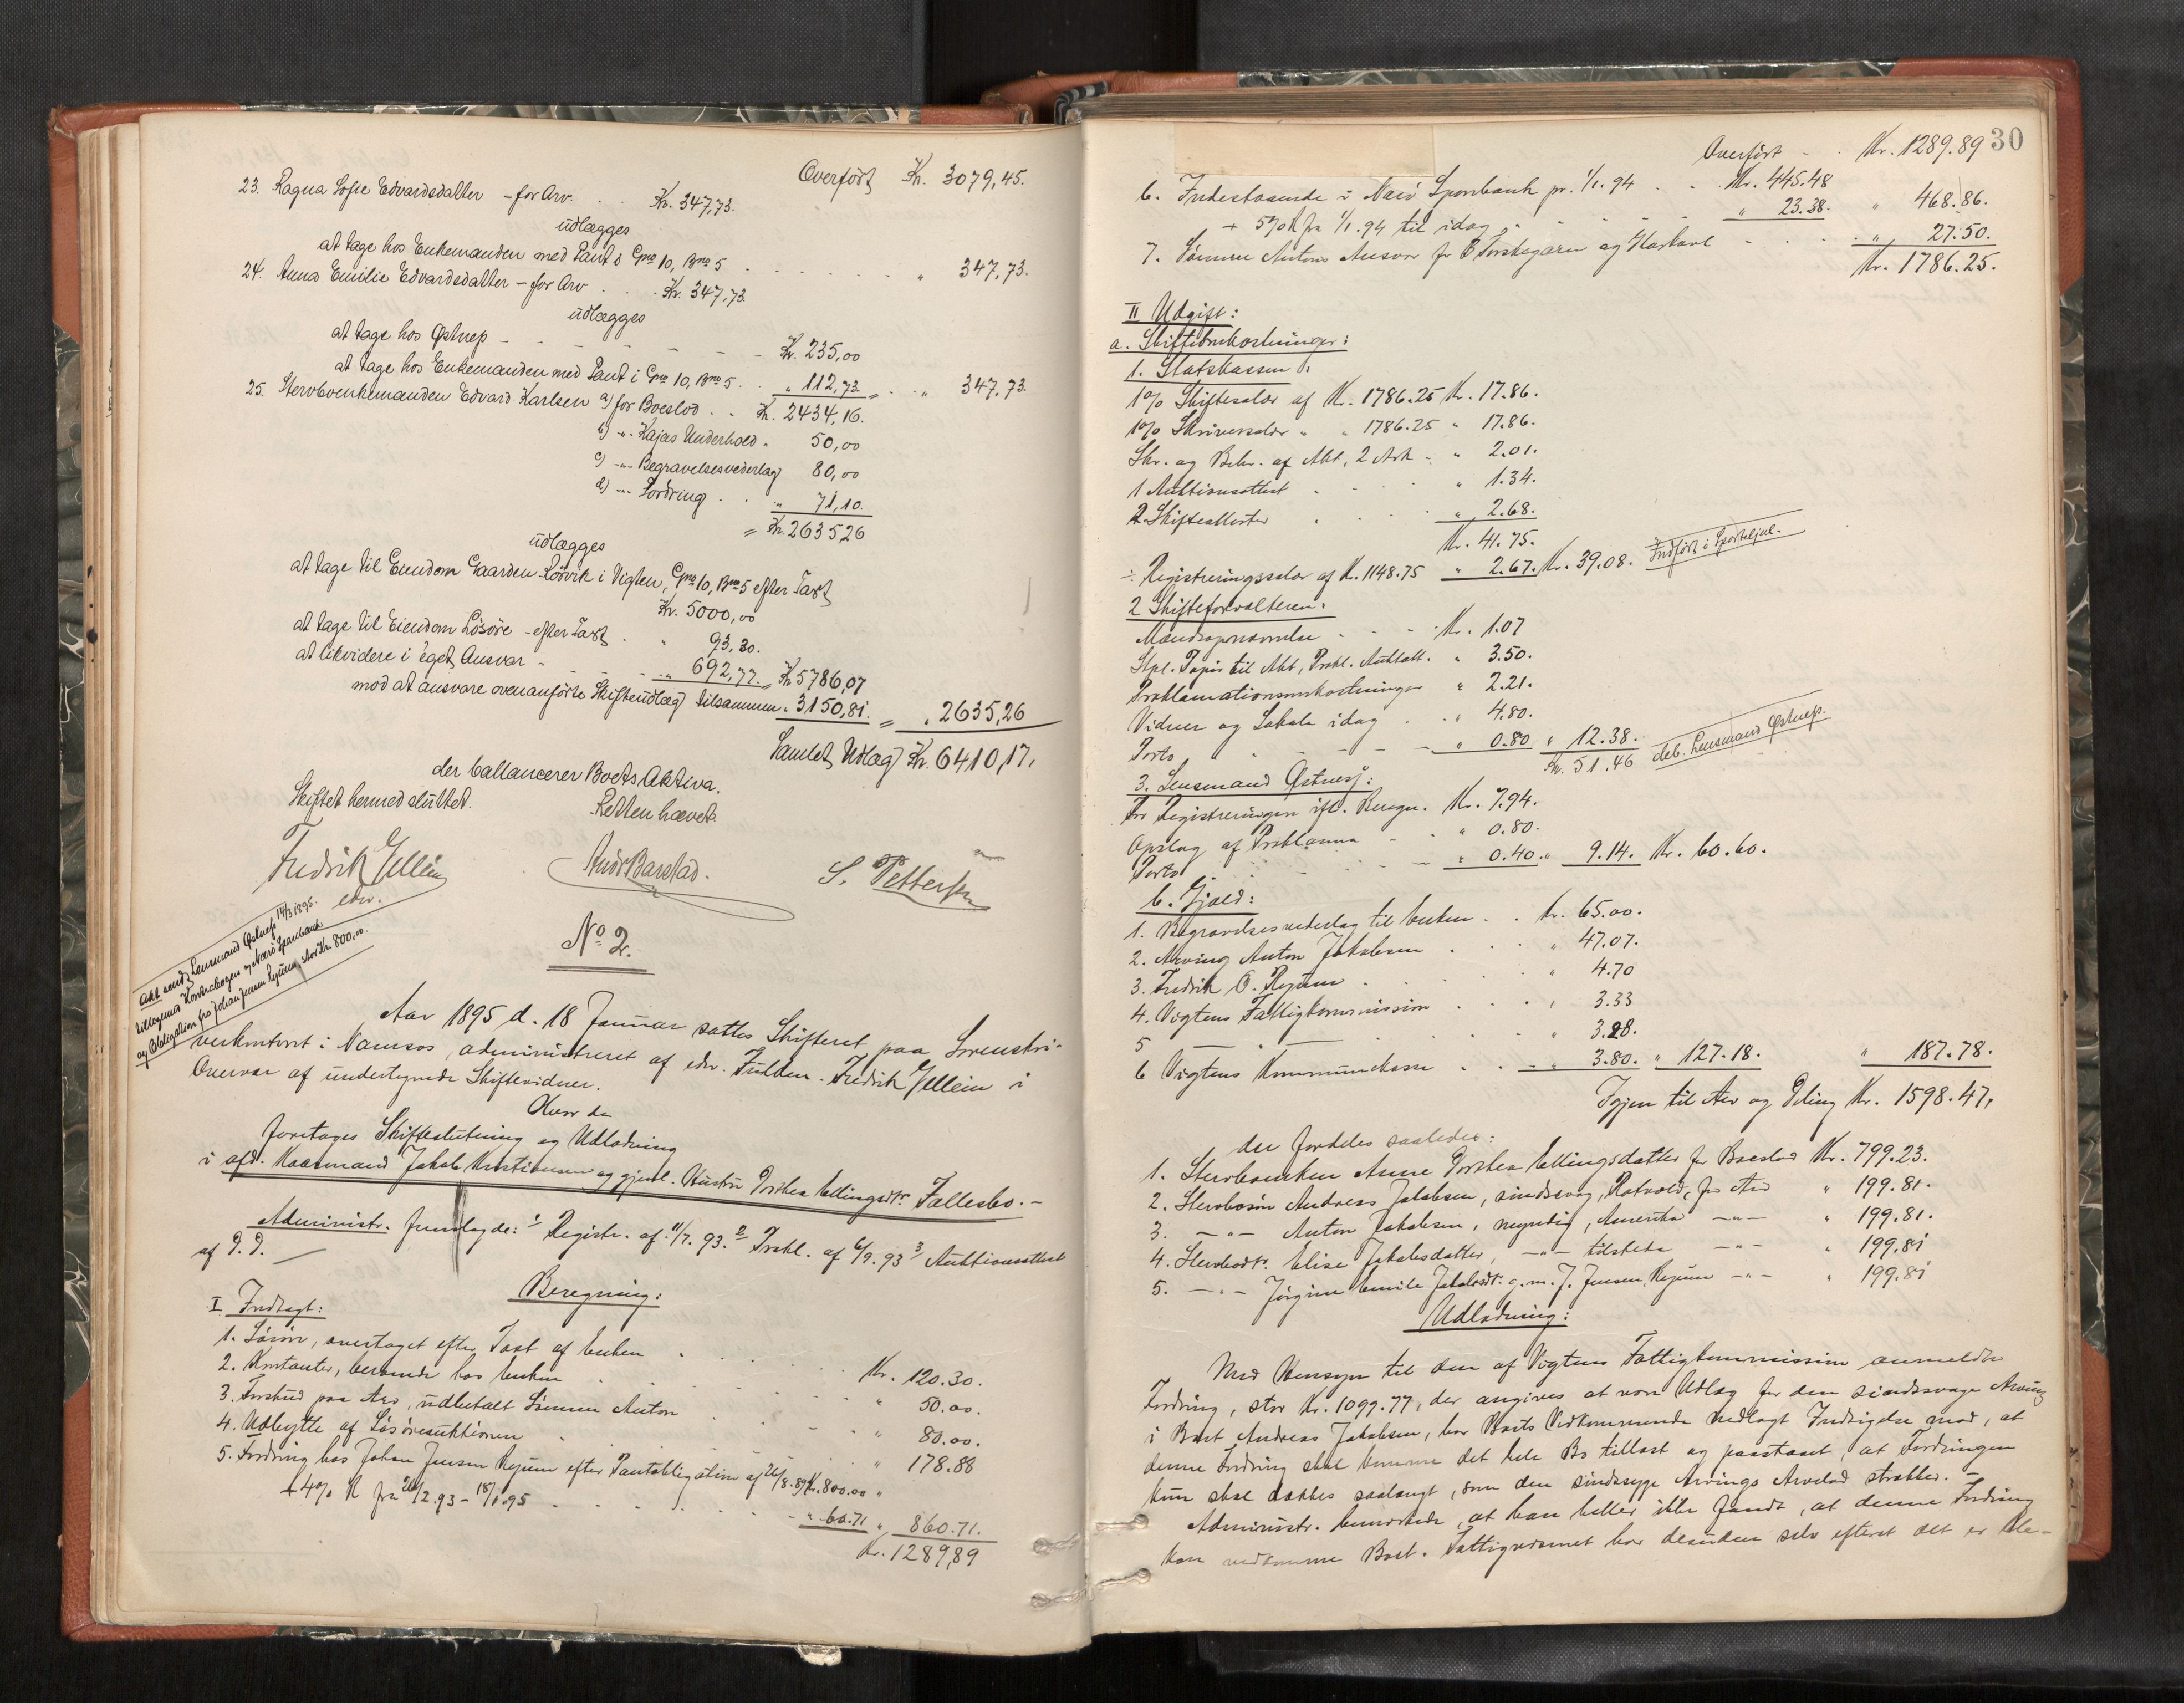 Overført Kr. 3079,45.
23. Ragna Sofie Edvardsdatter - for Arv. . . Kr. 347,73.
udlægges
at tage hos Enkemanden med Pant i Gno 10, Bno 5 . . . . . . . " 347,73.
24. Anna Emilie Edvardsdatter - for Arv . . . Kr. 347,73
udlægges
at tage hos Østnep - - - - - - Kr. 235,00
at tage hos Enkemanden med Pant i Gno 10, Bno 5 . . " 112,73 = . . " 347,73.
25. Stervboenkemanden Edvard Karlsen a) for Boeslod . . Kr. 2434,16.
b) -"- Kajas Underhold . 50,00
c) -"- Begravelsesvederlag 80,00
d) -"- Fordring . . " 71,10.
= Kr. 2635,26
udlægges
at tage til Eiendom Gaarden Rörvik i Vigten, Gno 10, Bno 5 efter Taxt
Kr. 5000,00
at tage til Eiendom Lösöre - efter Taxt . " 93,30.
at likvidere i eget Ansvar - - - " 692,77. = Kr. 5786,07
mod at ansvare ovenanførte Skifteudlæg tilsammen " 3150,81. = " 2635,26
Samlet Udlæg Kr. 6410,17.
der ballancerer Boets Aktiva.
Skiftet hermed sluttet. Retten hævet.
Fredrik Gellein
edsv.
Andr Barstad.
S. Pettersen
Akt sendt Lensmand Østnep 14/3 1895.
tillegemed Kontrabogen og Nærö Sparebank
og Obligation fra Johan Jensen Ryum, stor Kr. 800,00.
No 2.
Aar 1895 d. 18 Januar sattes Skifteret paa Sorenskri-
verkontoret i Namsos, administreret af edsv. Fuldm. Fredrik Gellein i
Overvær af undertegnede Skiftevidner.
Hvor da
foretoges Skifteslutning og Udlodning
i afd. Kaarmand Jakob Kristiansen og gjenl. Hustru Dorthea Ellingsdtr Fællesbo. -
Administr. fremlagde: 1 Registr. af 11/7. 93. 2 Prokl. af 6/9. 93 3 Auktionsattest
af D. D. -
Beregning:
I Indtægt:
1. Lösöre, overtaget efter Taxt af Enken . . . . . Kr. 120.30.
2. Kontanter, beroende hos Enken . . . . . " 50.00.
3. Forskud paa Arv, udbetalt Sönnen Anton . . . " 80.00.
4. Udbytte af Lösöreauktionen . . . . " 178.88
5. Fordring hos Johan Jensen Ryum efter Pantobligation af 26/8. 89 Kr. 800.00 "
+ 4% R fra 26/2. 93 - 18/1. 95 . . . . . . " 60.71 " 860.71.
Kr. 1289,89
30
Overført - . Kr. 1289.89
6. Indestaaende i Nærö Sparebank pr. 1/1. 94 . . Kr. 445.48
+ 5% R fra 1/1. 94 til idag . - - - - " 23.38. " 468.86.
7. Sönnen Antons Ansvar for 6 Torskegarn og . . . " 27.50.
Kr. 1786.25.
II Udgift:
a. Skifteomkostninger:
1. Statskassen:
1% Skiftesalær af Kr. 1786.25 Kr. 17.86.
1% Skriversalær " " 1786.25 " 17.86.
Skr. og Bekr. af Akt, 2 Ark - " 2.01.
1 Auktionsattest . . . . " 1.34.
2 Skifteattester . . . " 2.68.
Kr. 41.75.
÷ Registreringssalær af Kr. 1148.75 " 2.67. Kr. 39.08. Indført i Sporteljnl.
2 Skifteforvalteren:
Mandsopnævnelse - - - Kr. 1.07
Stpl. Papir til Akt, Prokl. Auktatt. " 3.50.
Proklamationsomkostninger " 2.21.
Vidner og Lokale idag . . " 4.80.
Porto - - - " 0.80 " 12.38.
Kr. 51.46 deb. Lensmand Østnep.
3. Lensmand Østnep:
For Registreringen ifl. Beregn. Kr. 7.94.
Opslag af Proklama - " 0.80.
Porto . . . . - " 0.40. " 9.14. Kr. 60.60.
b. Gjæld:
1. Begravelsesvederlag til Enken . . Kr. 65.00.
2. Arving Anton Jakobsen . . . " 47.07.
3. Fredrik O. Ryum . . . . " 4.70
4. Vigtens Fattigkommission . . . " 3.33
5 - " - . - " 3.28.
6 Vigtens Kommunekasse . . - " 3.80. " 127.18. " 187.78.
Igjen til Arv og Deling Kr. 1598.47.
der fordeles saaledes:
1. Stervboenken Anne Dorthea Ellingsdatter for Boeslod Kr. 799.23.
2. Stervbosön Andreas Jakobsen, sindssvag, Rotvold, for Arv " 199.81.
3. -"- Anton Jakobsen, myndig, Amerika -"- " 199.81.
4. Stervbodtr. Elise Jakobsdatter, -"- tilstede -"- " 199.81
5. -"- Jörgine Emilie Jakobsdtr. g. m. J. Jensen Ryum -"- " 199.81
Udlodning:
Med Hensyn til den af Vigtens Fattigkommission anmeldte
Fordring, stor Kr. 1099.77, der angives at være Udlæg for den sindssvage Arving
i Boet Andreas Jakobsen, har Boets Vedkommende nedlagt Indsigelse mod, at
denne Fordring skal komme det hele Bo tillast og paastaaet, at Fordringen
kun skal dækkes saalangt, som den sindssyge Arvings Arvelod strækker. -
Administr. bemærkede, at han heller ikke fandt, at denne Fordring
kan vedkomme Boet. Fattigvæsenet har desuden selv efteret det er Ble-